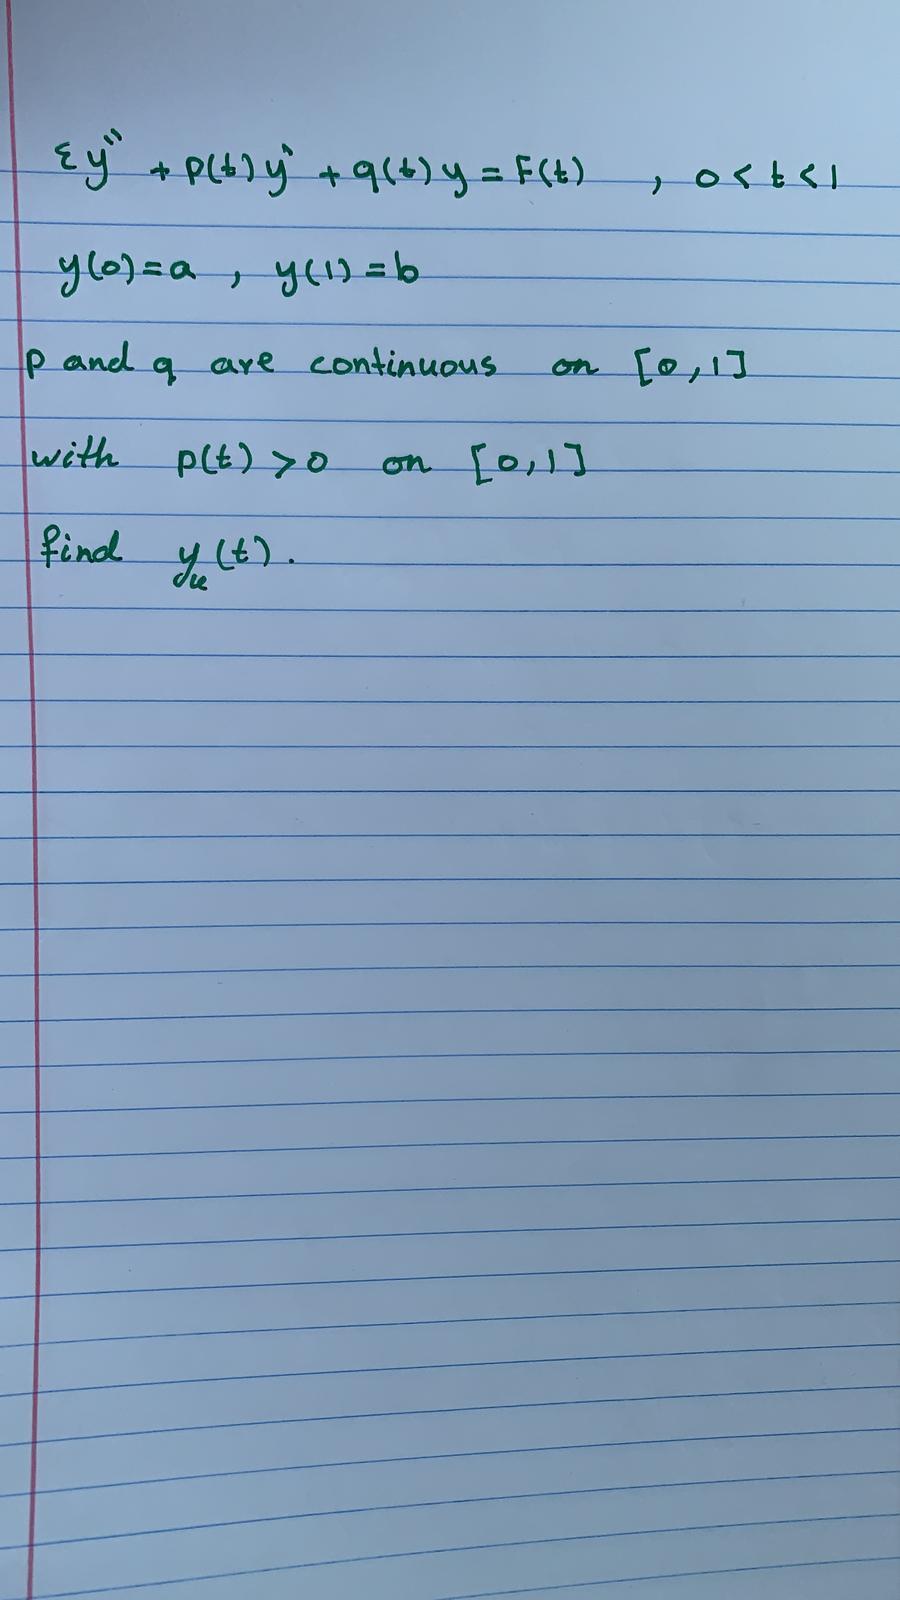 εy" + p(t)y' + q(t)y = F(t) , 0 < t < 1
y(0) = a , y(1) = b
p and q are continuous on [0,1]
with p(t) > 0 on [0,1]
find yᵤ(t).